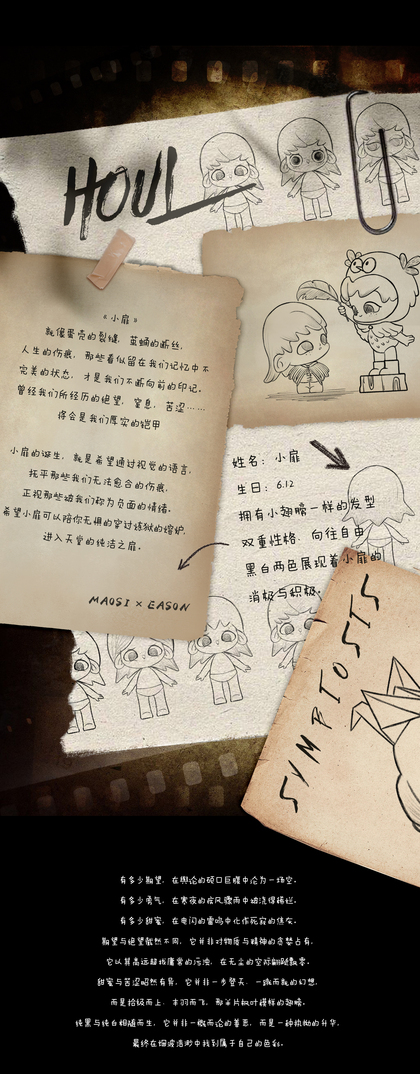 HOUL
《小扉》
就像蛋壳的裂缝，茧蛹的断丝，
人生的伤痕，那些看似留在我们记忆中不
完美的状态，才是我们不断向前的印记。
曾经我们所经历的绝望，窒息，苦涩……
将会是我们厚实的铠甲
小扉的诞生，就是希望通过视觉的语言，
抚平那些我们无法愈合的伤痕，
正视那些被我们称为负面的情绪。
希望小扉可以陪你无惧的穿过炼狱的熔炉，
进入天堂的纯洁之扉。
MAOSI × EASON
姓名：小扉
生日：6.12
拥有小翅膀一样的发型
双重性格 向往自由
黑白两色展现着小扉的
消极与积极。
SYMBIOSIS
有多少期望，在舆论的硕口巨膜中沦为一场空。
有多少勇气，在寒夜的疾风骤雨中被洗得稀烂。
有多少甜蜜，在电闪的雷鸣中化作死寂的焦灰。
期望与绝望截然不同，它并非对物质与精神的贪婪占有，
它以其高远超拔庸常的污浊，在无尘的空际翩跹飘零。
甜蜜与苦涩昭然有异，它并非一步登天，一蹴而就的幻想，
而是拾级而上，木羽而飞，那羊片枫叶模样的翅膀。
纯黑与纯白相随而生，它并非一概而论的善恶，而是一种执拗的升华，
最终在烟波浩渺中找到属于自己的色彩。